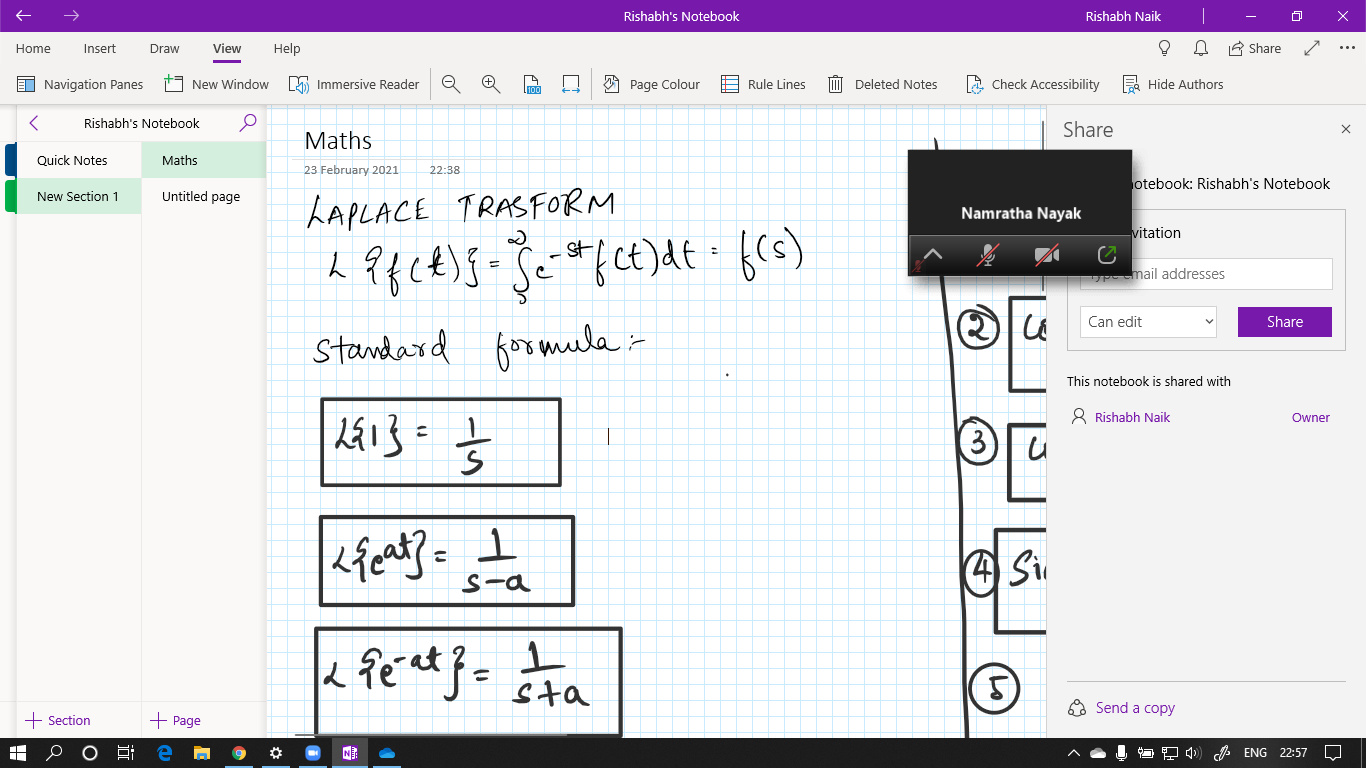 Rishabh's Notebook
Rishabh Naik
Home Insert Draw View Help
Share
Navigation Panes New Window Immersive Reader 100 Page Colour Rule Lines Deleted Notes Check Accessibility Hide Authors
Rishabh's Notebook
Quick Notes
New Section 1
Maths
Untitled page
Section
Page
Maths
23 February 2021 22:38
LAPLACE TRASFORM
L {f(t)} = ∫₀^∞ e^-st f(t)dt = f(s)
standard formula :-
L{1} = 1/s
L{e^at} = 1/(s-a)
L{e^-at} = 1/(s+a)
2
3
4
5
Share
notebook: Rishabh's Notebook
Namratha Nayak
Type email addresses
Can edit
Share
This notebook is shared with
Rishabh Naik Owner
Send a copy
ENG 22:57